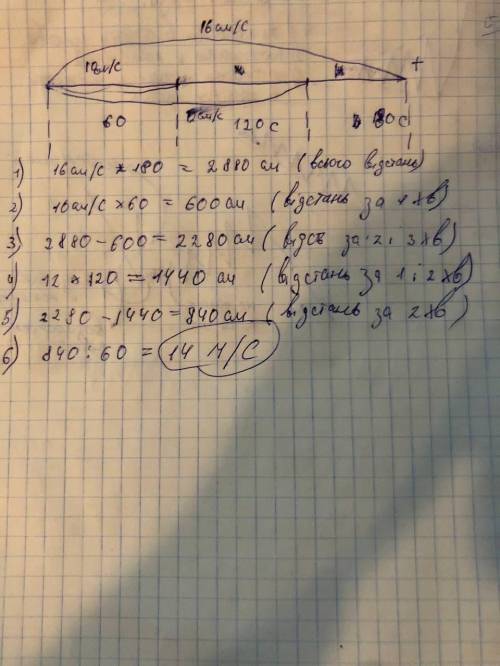 16 см/с
10 см/с
60 см/с 120 с 60 с
1) 16 см/с × 180 = 2880 см (всього відстань)
2) 10 см/с × 60 = 600 см (відстань за 1 хв)
3) 2880 - 600 = 2280 см (відст за 2 і 3 хв)
4) 12 × 120 = 1440 см (відстань за 1 і 2 хв)
5) 2280 - 1440 = 840 см (відстань за 2 хв)
6) 840 : 60 = 14 м/с